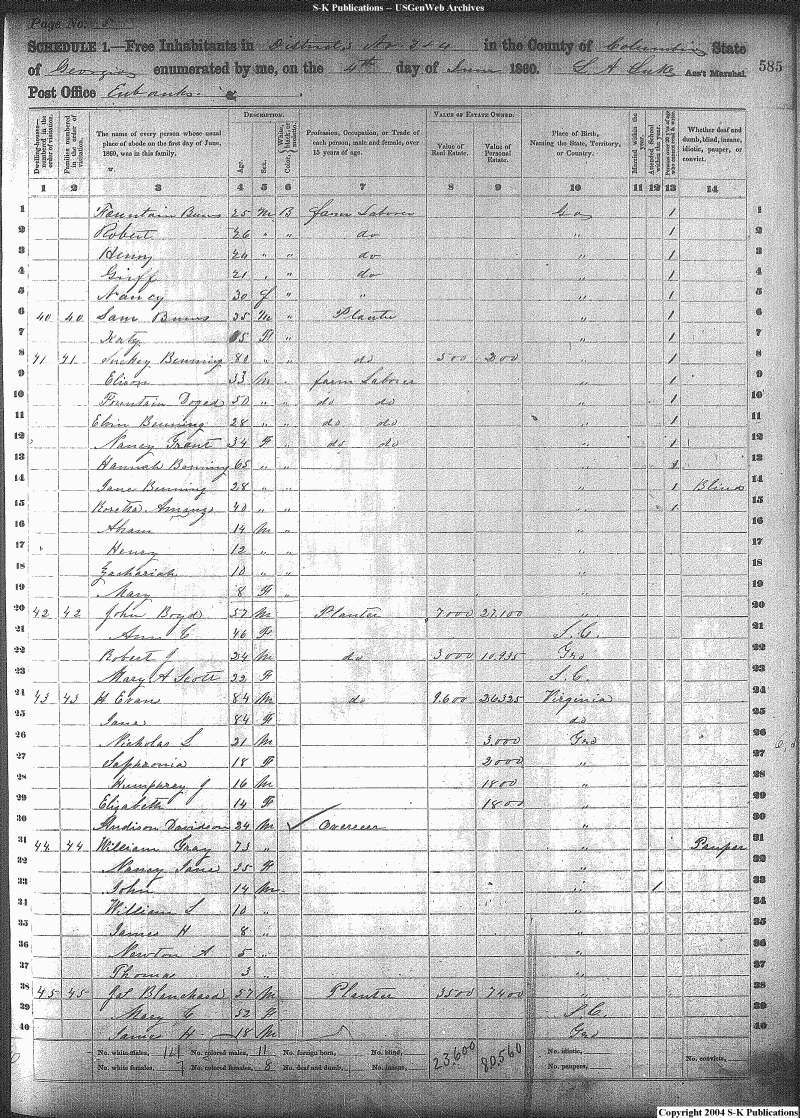 S-K Publications -- USGenWeb Archives
Page No. 5
SCHEDULE 1.—Free Inhabitants in Districts No. 3 & 4 in the County of Columbia State
of Georgia enumerated by me, on the 4th day of June 1860. Ass't Marshal. 585
Post Office Eubanks.
Dwelling-houses— numbered in the order of visitation. Families numbered in the order of visitation. The name of every person whose usual place of abode on the first day of June, 1860, was in this family. DESCRIPTION. Age. Sex. Color, White, black, or mulatto. Profession, Occupation, or Trade of each person, male and female, over 15 years of age. VALUE OF ESTATE OWNED. Value of Real Estate. Value of Personal Estate. Place of Birth, Naming the State, Territory, or Country. Married within the year. Attended School within the year. Whether deaf and dumb, blind, insane, idiotic, pauper, or convict.
1 2 3 4 5 6 7 8 9 10 11 12 13 14
1 Fountain Burns 25 M B farm Laborer Geo 1 1
2 Robert 26 " " do " 1 2
3 Henry 24 " " do " 1 3
4 Griff 21 " " do " 1 4
5 Nancy 30 f " " " 1 5
6 40 40 Sam Burns 35 M " Planter " 1 6
7 Katy 65 F " " 1 7
8 41 41 Benning 80 " " do 300 200 " 1 8
9 Elison 33 M farm Laborer " 1 9
10 Fountain 50 " " do do " 1 10
11 Benning 28 " " do do " 1 11
12 Nancy Grant 34 F " do do " 1 12
13 Hannah Benning 65 " " " 1 13
14 Jane Benning 28 " " " 1 Blind 14
15 40 " " " 1 15
16 14 M " " 16
17 Henry 12 " " " 17
18 Zachariah 10 " " " 18
19 Mary 8 F " " 19
20 42 42 John Boyd 57 M Planter 7000 27,100 " 20
21 Ann C 46 F S.C. 21
22 Robert J 24 M do 3000 10,935 Geo 22
23 Mary A Scott 22 F S.C. 23
24 43 43 H Evans 84 M do 9.600 26325 Virginia 24
25 Jane 84 F do 25
26 Nicholas L 21 M 3,000 Geo 26
27 Saphronia 18 F 2000 " 27
28 Humphrey J 16 M 1800 " 28
29 Elizabeth 14 F 1800 " 29
30 Davidson 24 M Overseer " 30
31 44 44 William Gray 73 " " Pauper 31
32 Nancy Jane 35 F " 32
33 John 14 M " 1 33
34 William L 10 " " 34
35 James H 8 " " 35
36 Newton A 5 " " 36
37 Thomas 3 " " 37
38 45 45 Blanchard 57 M Planter 3500 7400 " 38
39 Mary C 52 F S.C. 39
40 James H 18 M Geo 40
No. white males, 14 No. colored males, 11 No. foreign born, No. blind, 23,600 80,560 No. idiotic, No. convicts,
No. white females, 7 No. colored females, 8 No. deaf and dumb, No. insane, No. paupers,
Copyright 2004 S-K Publications